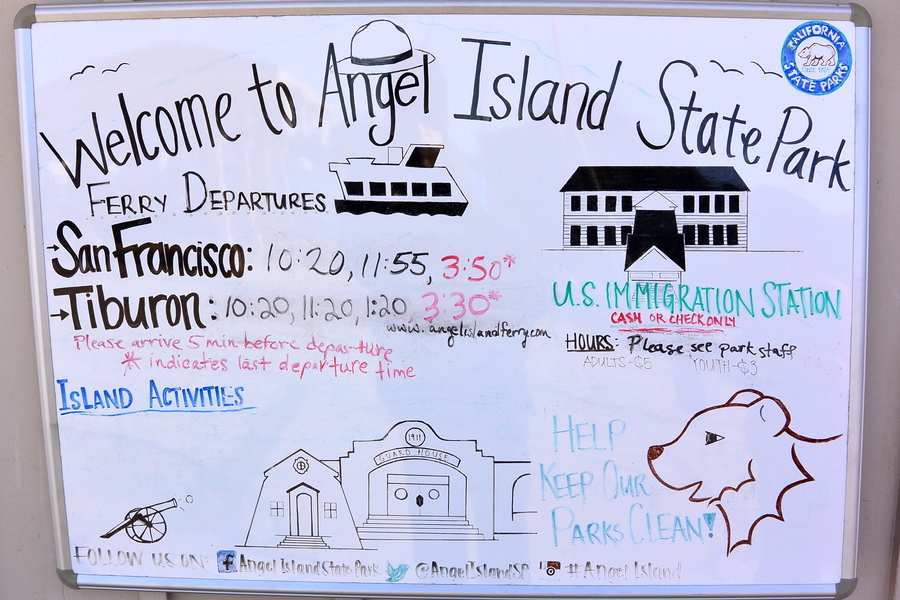 Welcome to Angel Island State Park
CALIFORNIA
SINCE 1864
STATE PARKS
FERRY DEPARTURES
San Francisco: 10:20, 11:55, 3:50*
Tiburon: 10:20, 11:20, 1:20, 3:30*
www.angelislandferry.com
Please arrive 5 min before departure
* indicates last departure time
U.S. IMMIGRATION STATION
CASH OR CHECK ONLY
HOURS: Please see park staff
ADULTS-$5 YOUTH-$3
ISLAND ACTIVITIES
1911
GUARD HOUSE
HELP
KEEP OUR
PARKS CLEAN!
FOLLOW US ON: f Angel Island State Park @AngelIslandSP #Angel Island